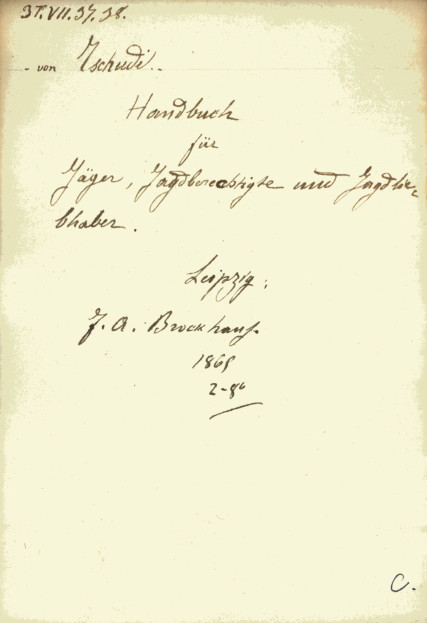 37.VII.37.38.
- von Tschudi.
Handbuch
für
Jäger, Jagdberechtigte und Jagdlie-
bhaber.
Leipzig:
F. A. Brockhaus.
1865
2-8°
C.